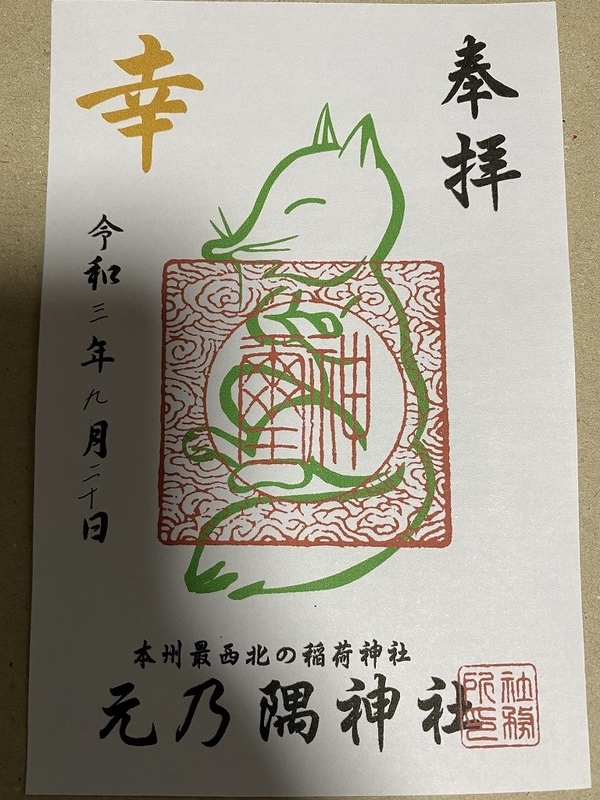 奉拝
幸
神璽
令和三年九月二十日
本州最西北の稲荷神社
元乃隅神社
社務
所印